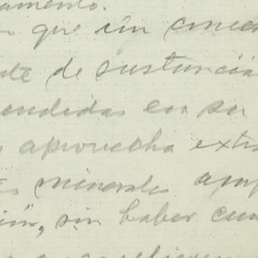 amento.
que sin conce
te de sustancia
endidas en su
aprovecha extr
minerales amp
ión, sin haber cum